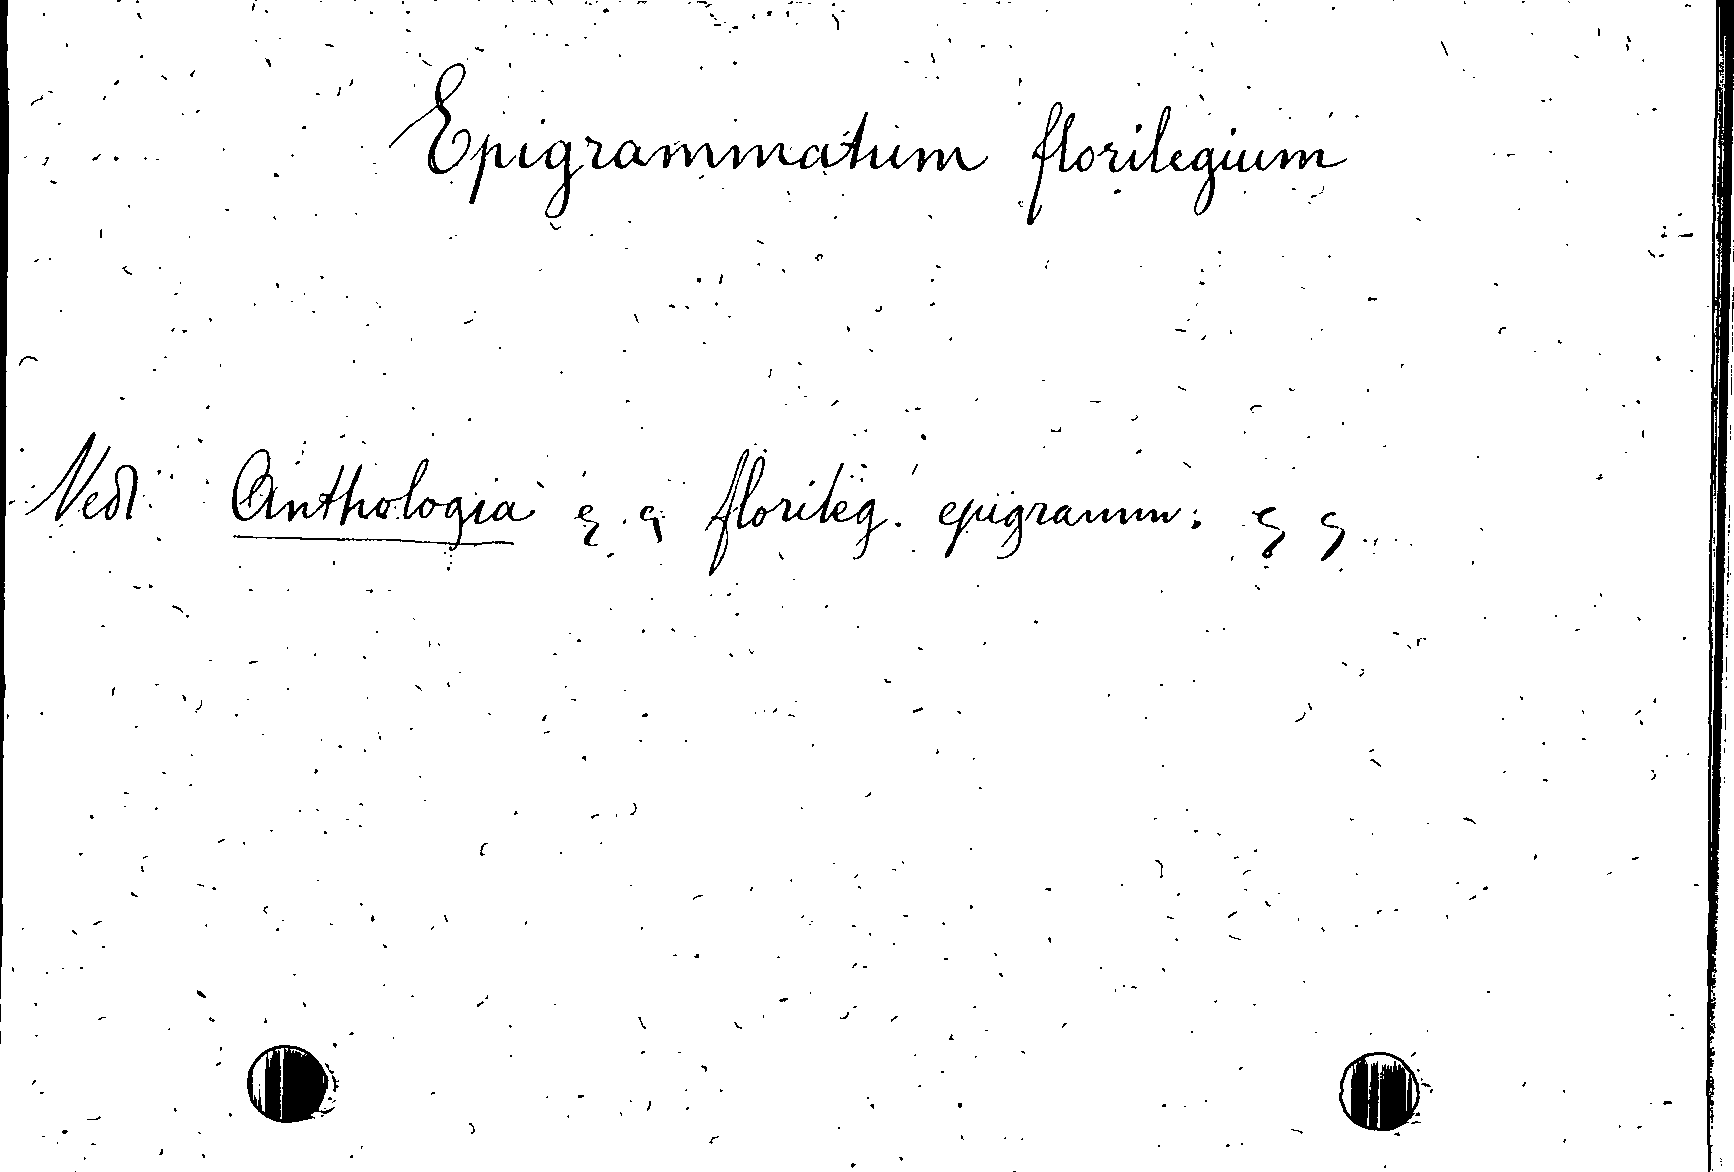 Epigrammatum florilegium
Vedi Anthologia florileg. epigramm: